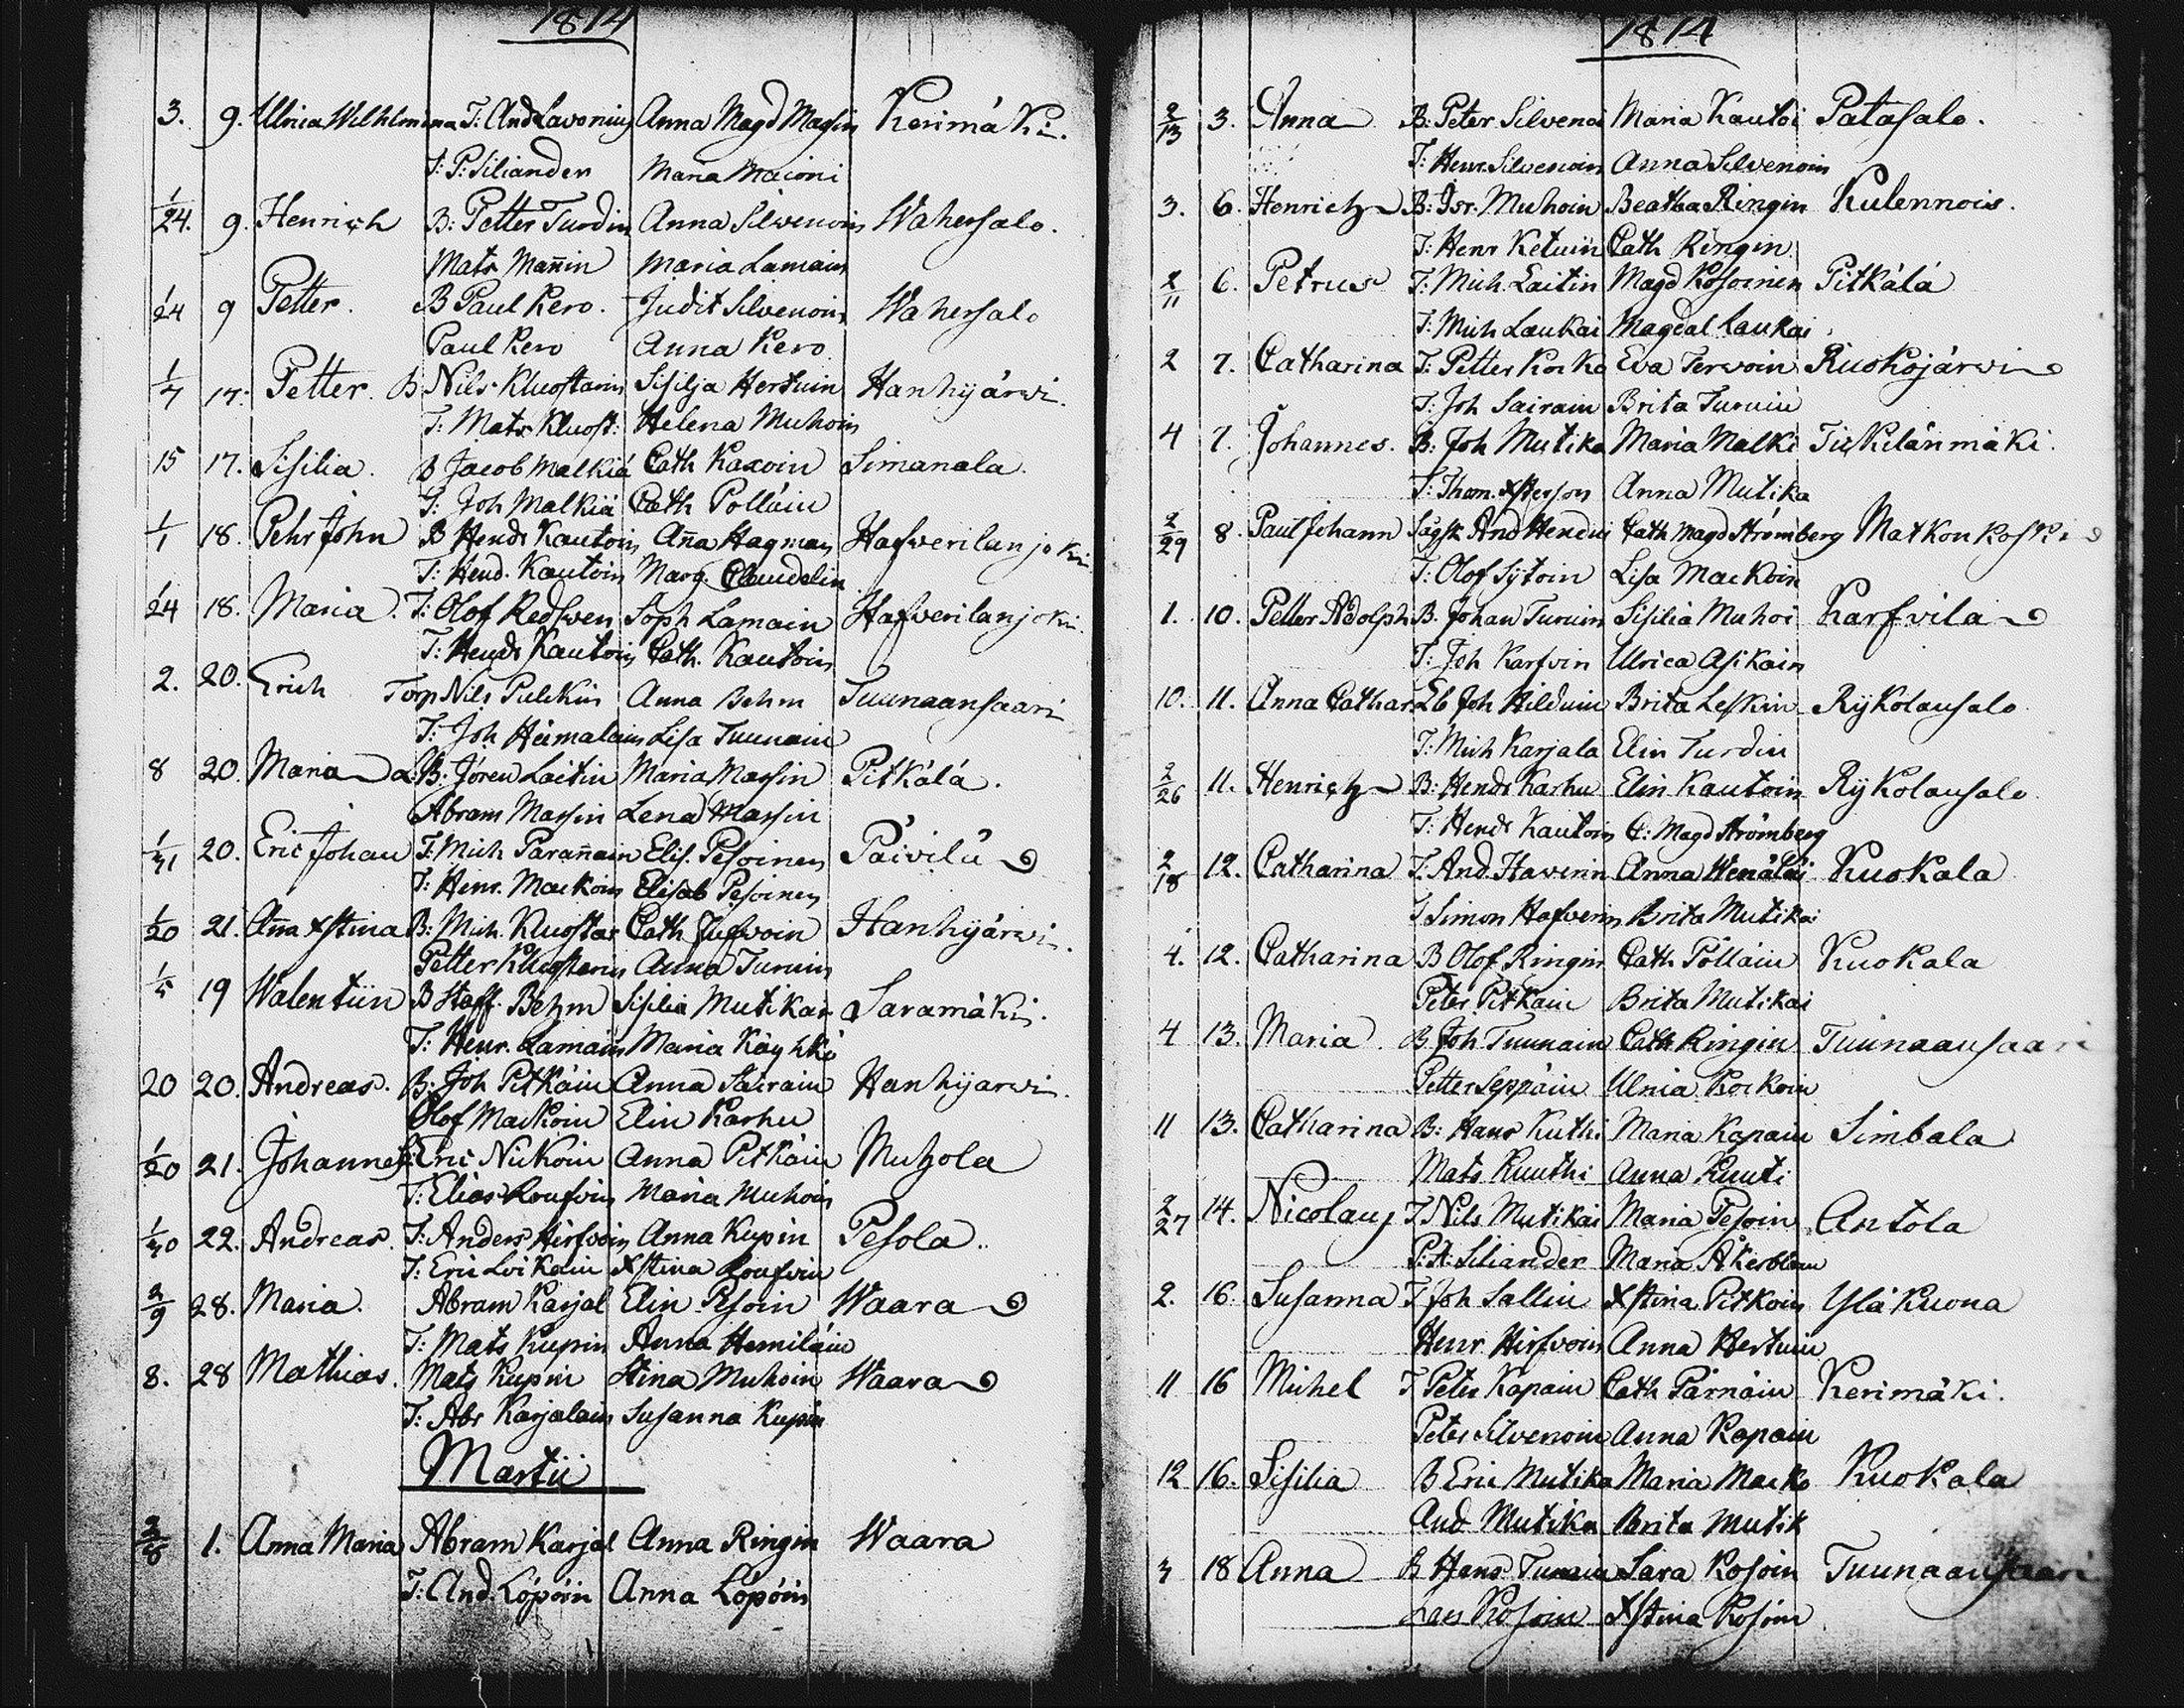 1814
3. 9. Ulrica Wilhlmina T: And Lavonius Anna Magd Massin Kerimäki.
T: P: Siliander Maria Maioni
1/24. 9. Henrich B: Petter Turdin Anna Silvenoin Wahersalo.
Mats Mañin Maria Lamain
1/24 9 Petter. B Paul Kero. Judit Silvenoin Wahersalo
Paul Kero Anna Kero
1/7 17. Petter. B Nils Kluostarin Sisilja Hertuin Hanhijärwi.
T: Mats Kluost: Helena Muhoin
15 17. Sisilia. B Jacob Malkiä Cath Kaxoin Simanala.
T: Joh Malkiä Cath Pölläin
1/1 18. Pehr John B Hendr Kautoin Aña Hagman Hafwerilanjoki
T: Hend. Kautoin Marg. Claudelin
1/24 18. Maria. T: Olof Redswen Soph Lamain Hafwerilanjoki.
T: Hendr Kautoin Cath. Kautoin
2. 20. Erich Torp Nils Pulckin Anna Behm Tuunaansaari
T: Joh Heimalain Lisa Tuunain
8 20. Maria B: Jören Laitin Maria Massin Pitkälä.
Abram Massin Lena Massin
1/31 20. Eric Johan T: Mich Parañain Elis. Pesoinen Päivilä
T: Henr. Mackoin Elisab Pesoinen
1/20 21. Aña Xstina B: Mich. Kluostar Cath Jufvoin Hanhijärwi.
Petter Kluostarin Anna Turuin
1/5 19 Walentiin B Staff. Behm Sisilia Mutikar Saramäki.
T: Henr. Lamain Maria Käyhkö
20 20. Andreas. B: Joh Pitkäin Anna Sairain Hanhijarwi.
Olof Mackoin Elin Karhu
1/20 21. Johannes T: Eric Nickoin Anna Pitkäin Muhola
T: Elias Roufvin Maria Muhoin
1/30 22. Andreas. T: Anders Hirfvoin Anna Kupin Pesola.
T: Eric Loikain Xstina Roufvin
2/9 28. Maria. Abram Karjal Elin Pesoin Waara
T: Mats Kupin Anna Hemiläin
8. 28 Mathias. Mats Kupin Stina Muhoin Waara
T: Abr Karjalain Susanna Kupin
Martii
2/8 1. Anna Maria Abram Karjal Anna Ringin Waara
T: And. Löpöin Anna Löpöin
1814
2/13 3. Anna B: Peter Silvenoi Maria Kautoi Patasalo.
T: Henr. Silvenoin Anna Silvenoin
3. 6. Henrich B: Isr. Muhoin Beatha Ringin Kulennois.
T: Henr Ketuiin Cath Ringin
2/11 6. Petrus T: Mich. Laitin Magd Kosoinen Pitkälä
T: Mich Laukai Magdal Laukai
2 7. Catharina T: Petter Kocko Eva Terwoin Ruokojärwi
T: Joh Sairain Brita Turuin
4 7. Johannes. B: Joh Mutika Maria Malki Tiukilänmäki.
T: Thom. Xsterson Anna Mutika
2/29 8. Paul Johann Sågsk And Hendui Cath Magd Strömberg Matkonkoski
T: Olof Sÿtoin Lisa Mackoin
1. 10. Petter Adolph B. Johan Turuin Sisilia Muhoi Karfvila
T: Joh Karfvin Ulrica Asikain
10. 11. Anna Cathar. Lb Joh Hilduin Brita Leskin Rÿkolansalo
T: Mich Karjala Elin Turdin
2/26 11. Henrich B: Hendr Karhu Elin Kautoin Rÿkolansalo
T: Hendr Kautoin C: Magd Strömberg
2/18 12. Catharina T. And. Hawerin Anna Wenäläi Kuokala
T Simon Hafverin Brita Mutikai
4. 12. Catharina B Olof Ringin Cath Pölläin Kuokala
Peter Pitkäin Brita Mutikai
4 13. Maria. B Joh Tuunain Cath Ringin Tuunaansaari
Petter Seppäin Ulrica Kockoin
11 13. Catharina B: Hans Kuthi Maria Kapain Simbala
Mats Kuuthi Anna Kuuti
2/27 14. Nicolaus T Nils Mutikai Maria Pesoin Antola
P: A: Siliander Maria Åkerblom
2. 16. Susanna T Joh Sallin Xstina Pitkoin Ylä Kuona
Henr. Hirfvoin Anna Hertuin
11 16 Michel T Peter Kapain Cath Pärnäin Kerimäki.
Peter Silvenoin Anna Kapain
12 16. Sisilia B Eric Mutika Maria Macko Kuokala
And Mutika Brita Mutik
3 18 Anna B Hans Tunain Sara Kosoin Tuunaansaari
Lars Kosoin Xstina Kosoin